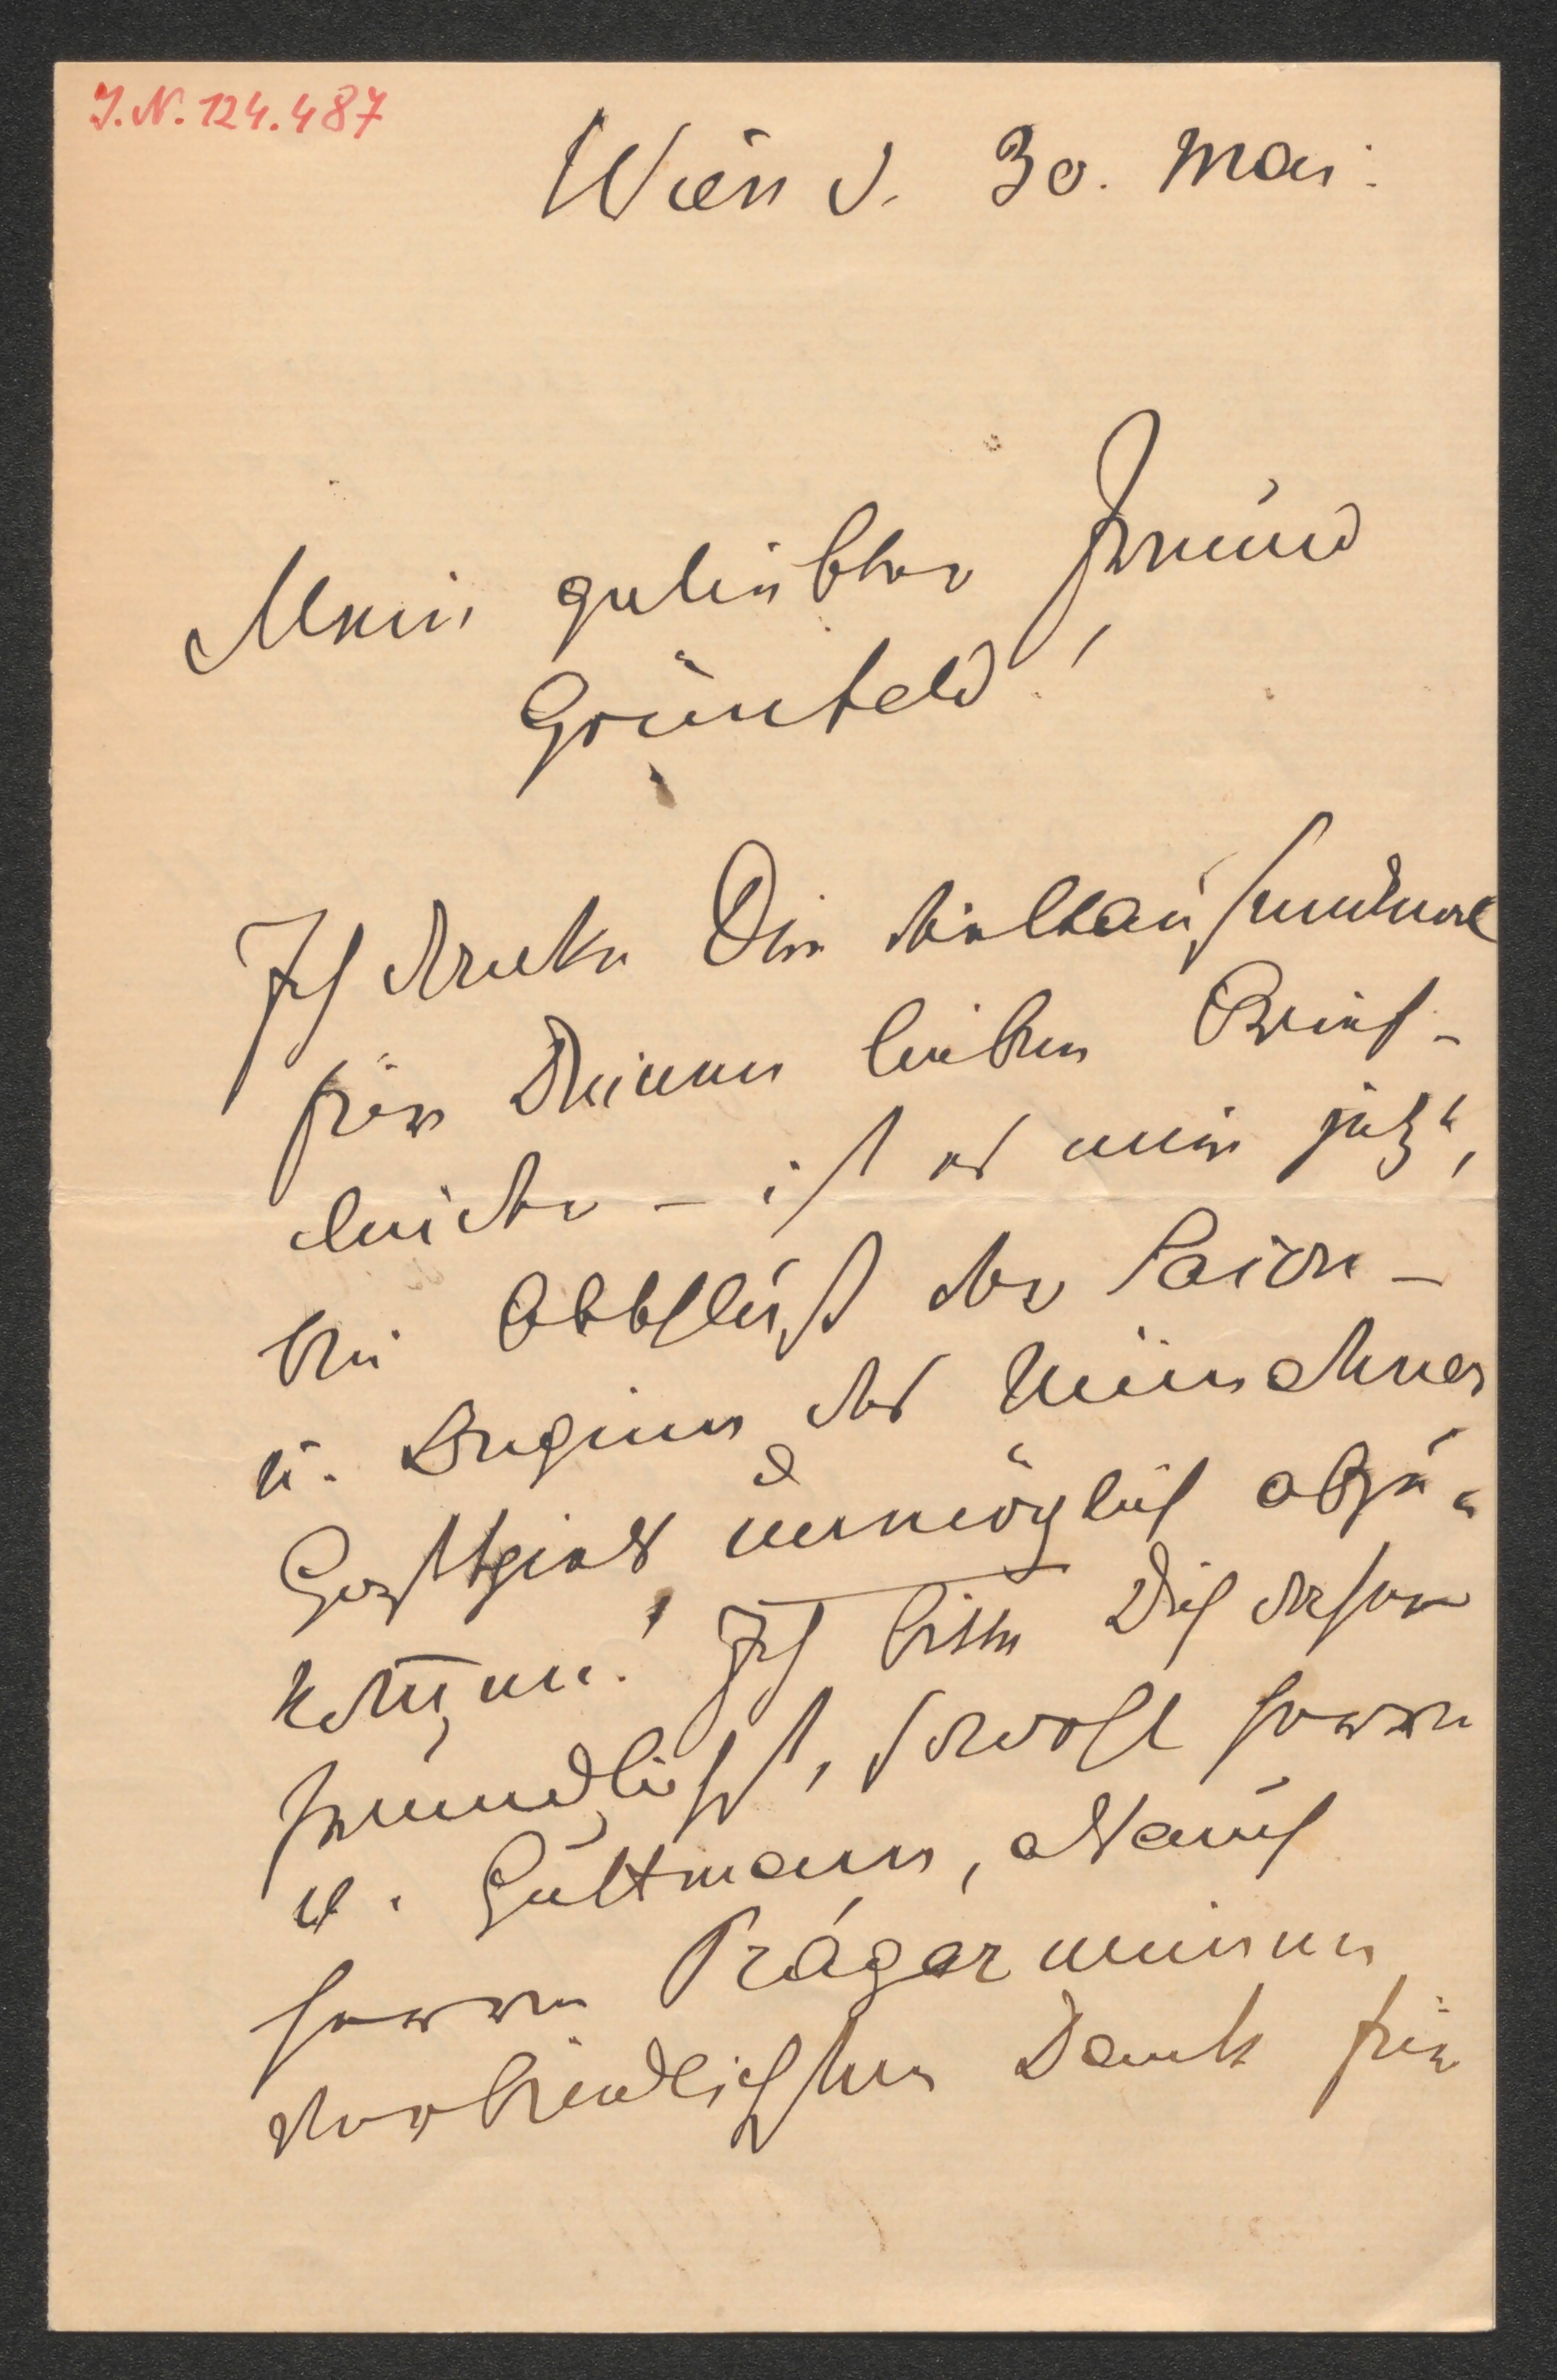 J.N. 124.487
Wien d. 30. Mai.
Mein geliebter Freund
Grünfeld!
Ich danke Dir vieltausendmal
für Deinen lieben Brief –
leider – ist es mir jetzt,
bei Abschluß der Saison –
u. Beginn des Münchner
Gastspiels unmöglich abzu-
kom̄en! Ich bitte Dich daher
freundlichst, sowohl Herrn
v. Guttmann, als auch
Herrn Práger meinen
verbindlichsten Dank für